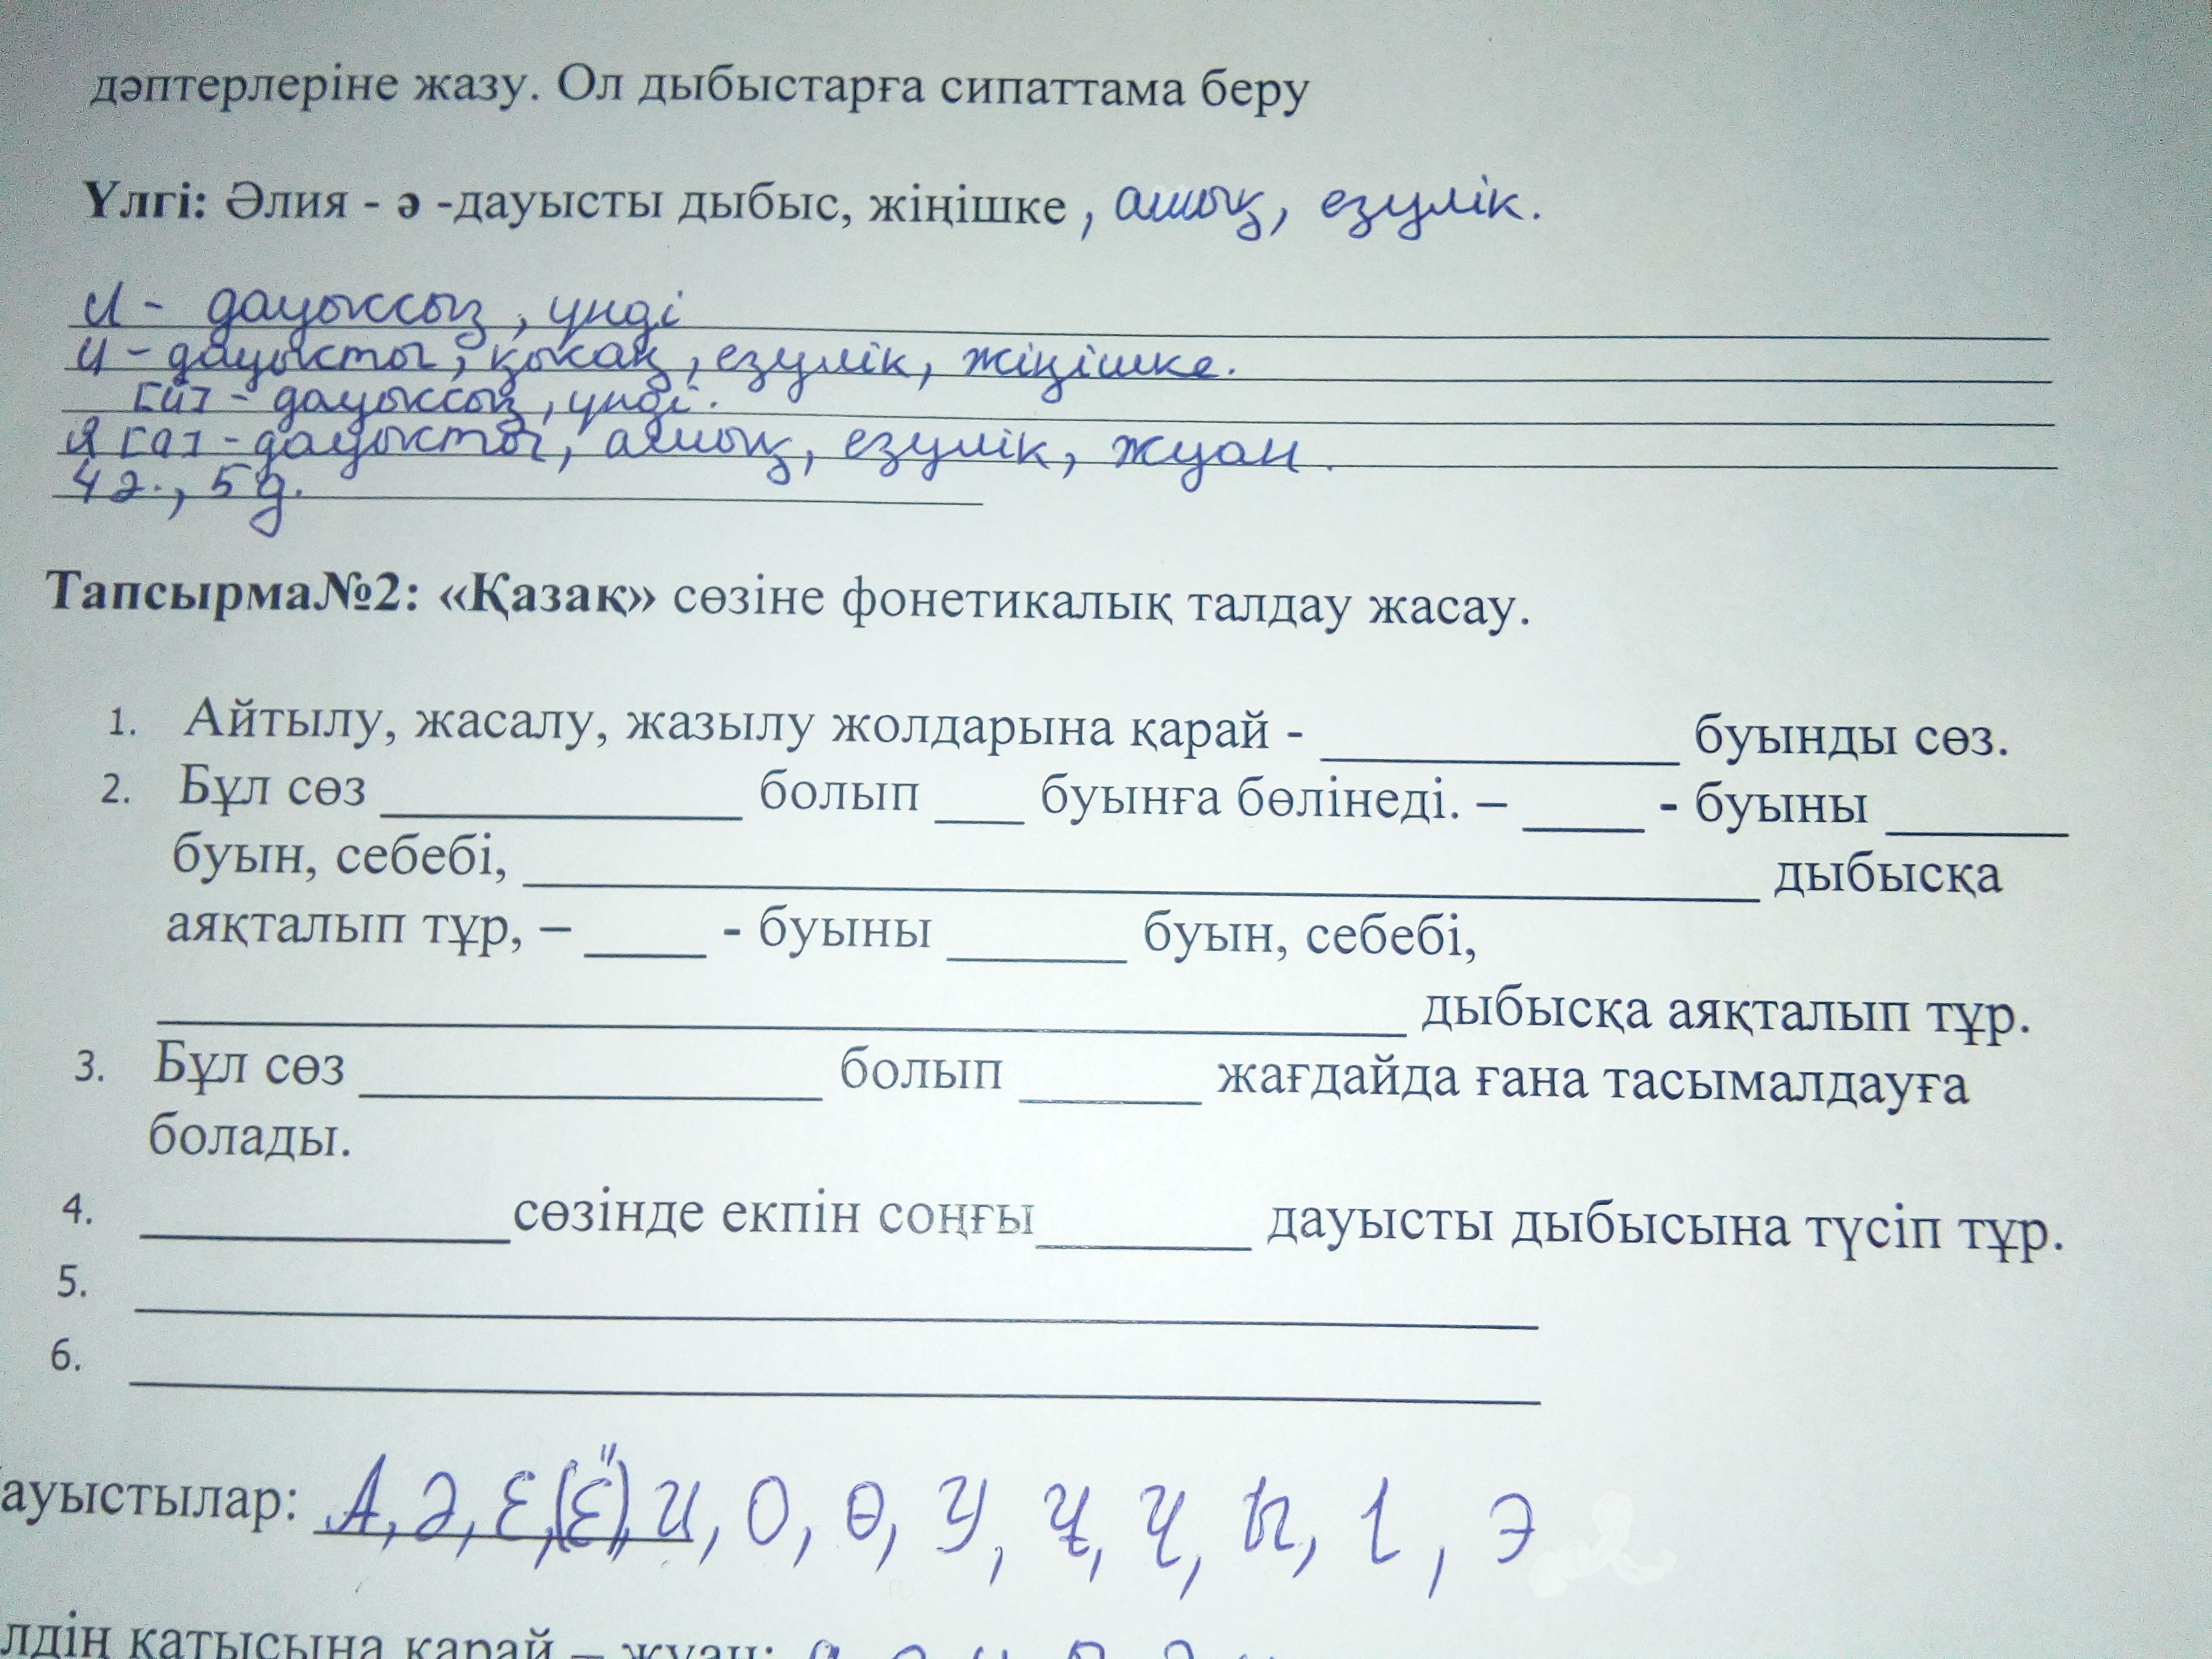 дәптерлеріне жазу. Ол дыбыстарға сипаттама беру
Үлгі: Әлия - ә -дауысты дыбыс, жіңішке , ашық, езулік.
И - дауыссыз, үнді
И - дауысты, қысаң, езулік, жіңішке.
[й] - дауыссыз, үнді.
Я [а] - дауысты, ашық, езулік, жуан.
4 ә., 5 д.
Тапсырма№2: «Қазақ» сөзіне фонетикалық талдау жасау.
1. Айтылу, жасалу, жазылу жолдарына қарай - ____________ буынды сөз.
2. Бұл сөз ____________ болып ___ буынға бөлінеді. – ____ - буыны ______
буын, себебі, ________________________________________ дыбысқа
аяқталып тұр, – ____ - буыны ______ буын, себебі,
________________________________________ дыбысқа аяқталып тұр.
3. Бұл сөз _______________ болып ______ жағдайда ғана тасымалдауға
болады.
4. ____________сөзінде екпін соңғы_______ дауысты дыбысына түсіп тұр.
5. ______________________________________________
6. ______________________________________________
ауыстылар: А, Ә, Е,(Ё), И, О, Ө, У, Ұ, Ү, Ы, І, Э
лдің қатысына қарай – жуан: